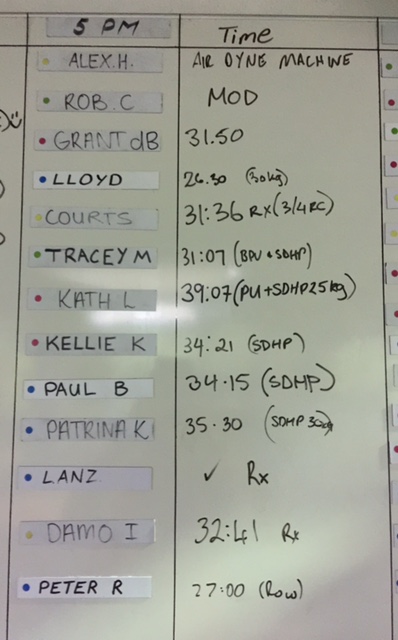 5 PM Time
ALEX.H. AIR DYNE MACHINE
ROB.C MOD
GRANT dB 31.50
LLOYD 26.30 (30kg)
COURTS 31:36 RX (3/4 RC)
TRACEY M 31:07 (BPU + SDHP)
KATH L 39:07 (PU + SDHP 25kg)
KELLIE K 34:21 (SDHP)
PAUL B 34.15 (SDHP)
PATRINA K 35.30 (SDHP 30kg)
LANZ ✓ Rx
DAMO I 32:41 Rx
PETER R 27:00 (Row)